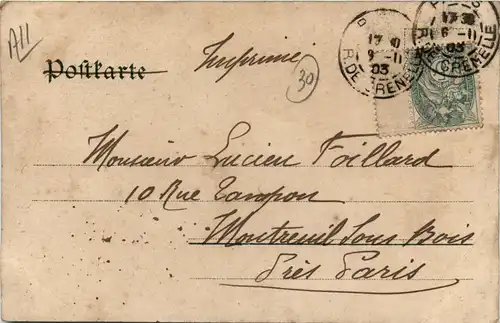 A11
Postkarte
Imprimé
30
17 30
6 - 11
03
R. DE GRENELLE
17 30
6 - 11
03
R. DE GRENELLE
Monsieur Lucien Foillard
10 Rue Tampon
Montreuil Sous Bois
Près Paris